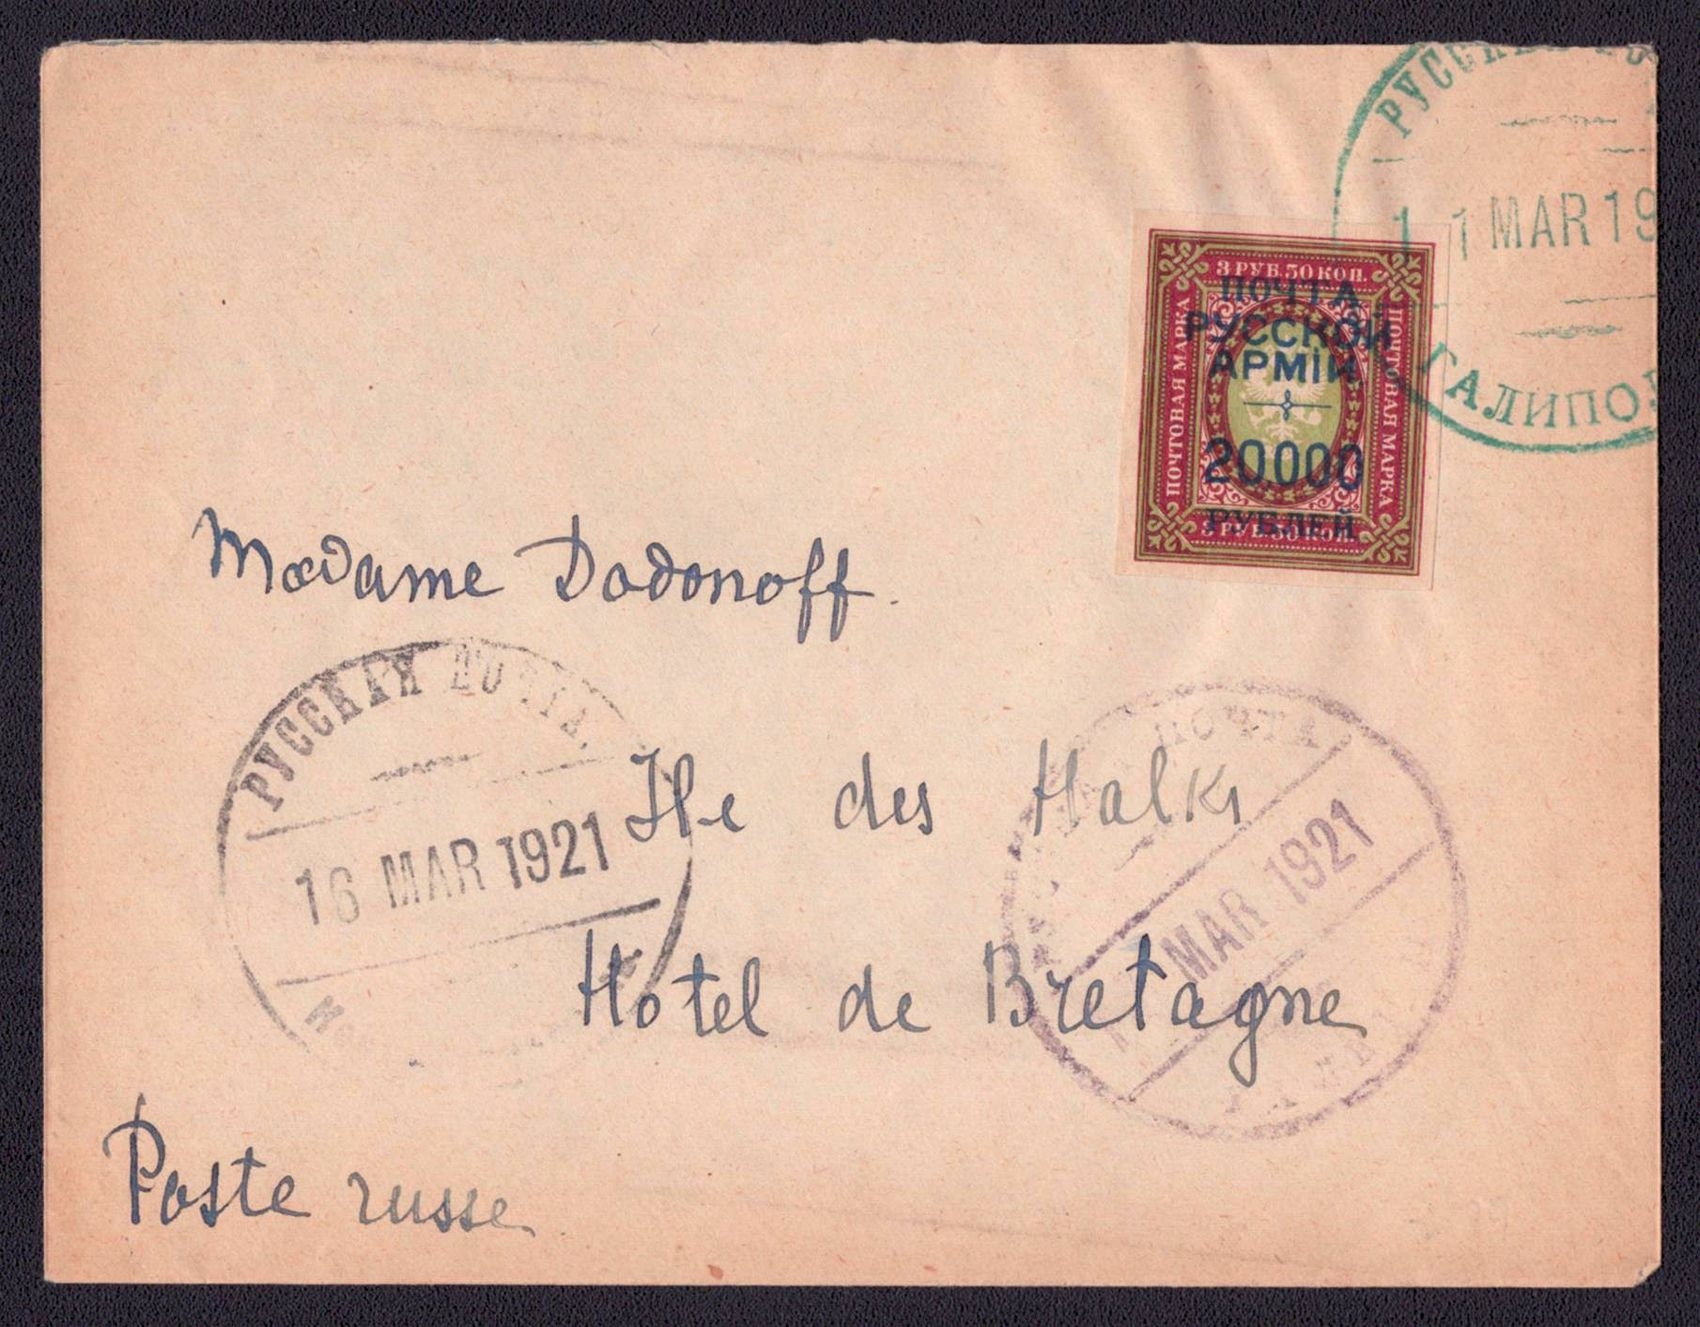 РУССКАЯ
1 1 MAR 19
ГАЛИПОЛ
3 РУБ. 50 КОП.
ПОЧТОВАЯ МАРКА
ПОЧТОВАЯ МАРКА
ПОЧТА
РУССКОЙ
АРМІИ
20000
РУБЛЕЙ
3 РУБ. 50 КОП.
Madame Dodonoff.
РУССКАЯ ПОЧТА.
16 MAR 1921
Ile des Halki
ПОЧТА
MAR 1921
Hotel de Bretagne
Poste russe